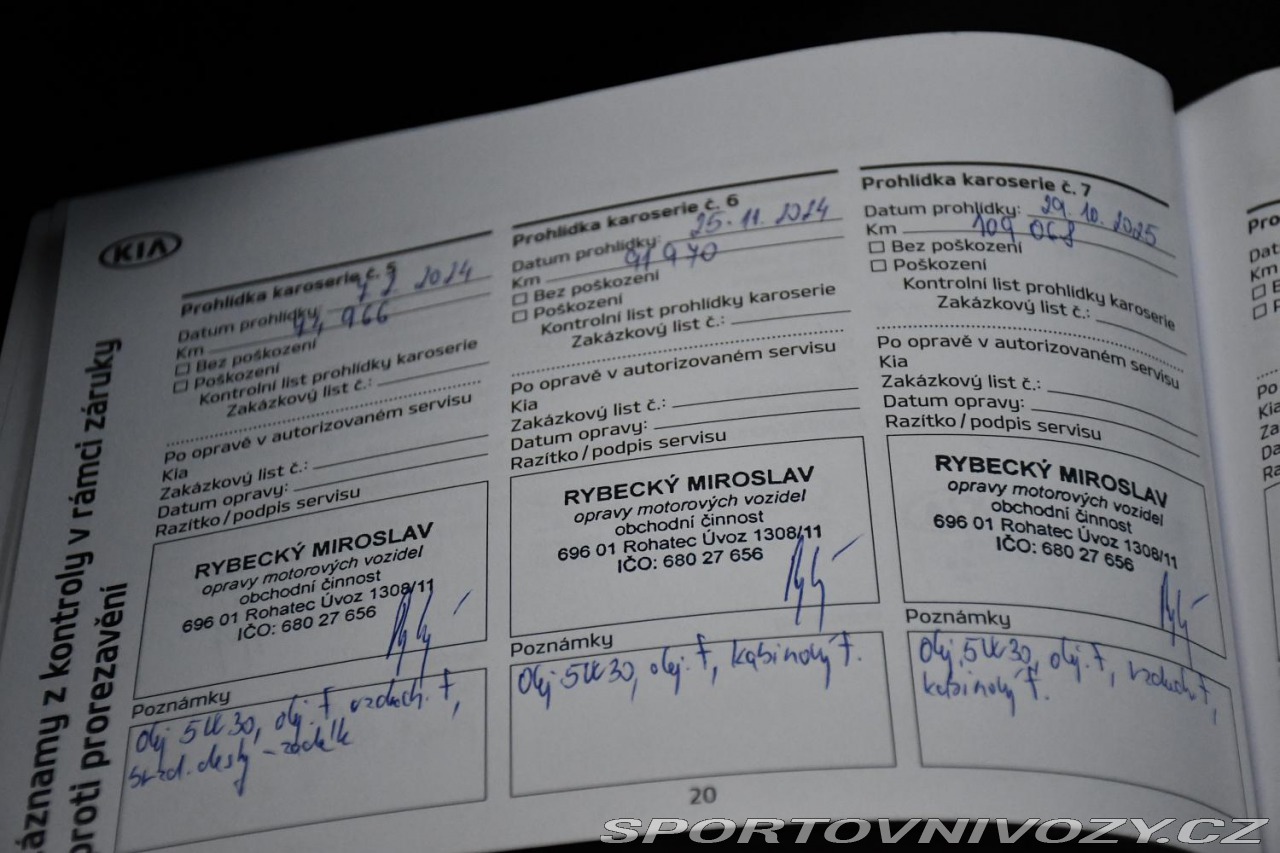 KIA
Záznamy z kontroly v rámci záruky
proti prorezavění
Prohlídka karoserie č. 5
Datum prohlídky: 2024
Km 74 966
Bez poškození
Poškození
Kontrolní list prohlídky karoserie
Zakázkový list č.:
Po opravě v autorizovaném servisu
Kia
Zakázkový list č.:
Datum opravy:
Razítko / podpis servisu
RYBECKÝ MIROSLAV
opravy motorových vozidel
obchodní činnost
696 01 Rohatec Úvoz 1308/11
IČO: 680 27 656
Poznámky
Olej 5W30, olej. f, vzduch. f,
brzd. desky - zadek
Prohlídka karoserie č. 6
Datum prohlídky: 25. 11. 2024
Km 91 970
Bez poškození
Poškození
Kontrolní list prohlídky karoserie
Zakázkový list č.:
Po opravě v autorizovaném servisu
Kia
Zakázkový list č.:
Datum opravy:
Razítko / podpis servisu
RYBECKÝ MIROSLAV
opravy motorových vozidel
obchodní činnost
696 01 Rohatec Úvoz 1308/11
IČO: 680 27 656
Poznámky
Olej 5W30, olej. f, kabinový f.
Prohlídka karoserie č. 7
Datum prohlídky: 29. 10. 2025
Km 109 068
Bez poškození
Poškození
Kontrolní list prohlídky karoserie
Zakázkový list č.:
Po opravě v autorizovaném servisu
Kia
Zakázkový list č.:
Datum opravy:
Razítko / podpis servisu
RYBECKÝ MIROSLAV
opravy motorových vozidel
obchodní činnost
696 01 Rohatec Úvoz 1308/11
IČO: 680 27 656
Poznámky
Olej 5W30, olej. f, vzduch f,
kabinový f.
20
SPORTOVNIVOZY.CZ